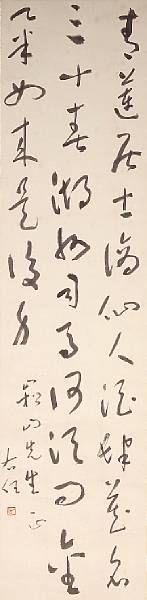 青蓮居士謫仙人酒肆藏名
三十春湖州司馬何須問金
粟如來是後身
山先生正
右任